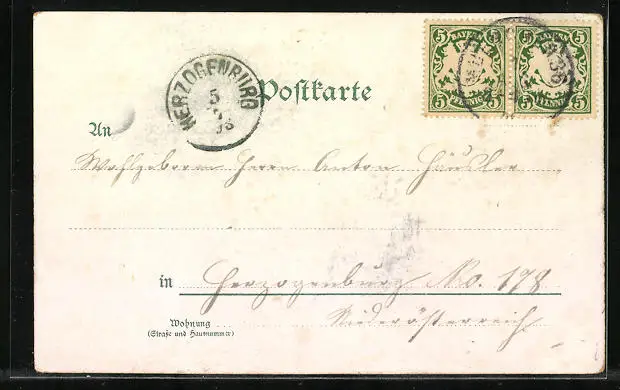 BAYERN BAYERN
5 5 5 5
PFENNIG PFENNIG
HERZOGENBURG
5
Postkarte
An
Wohlgeboren Herrn Anton Häusler
in Herzogenburg No. 178
Wohnung
(Straße und Hausnummer)
Niederösterreich